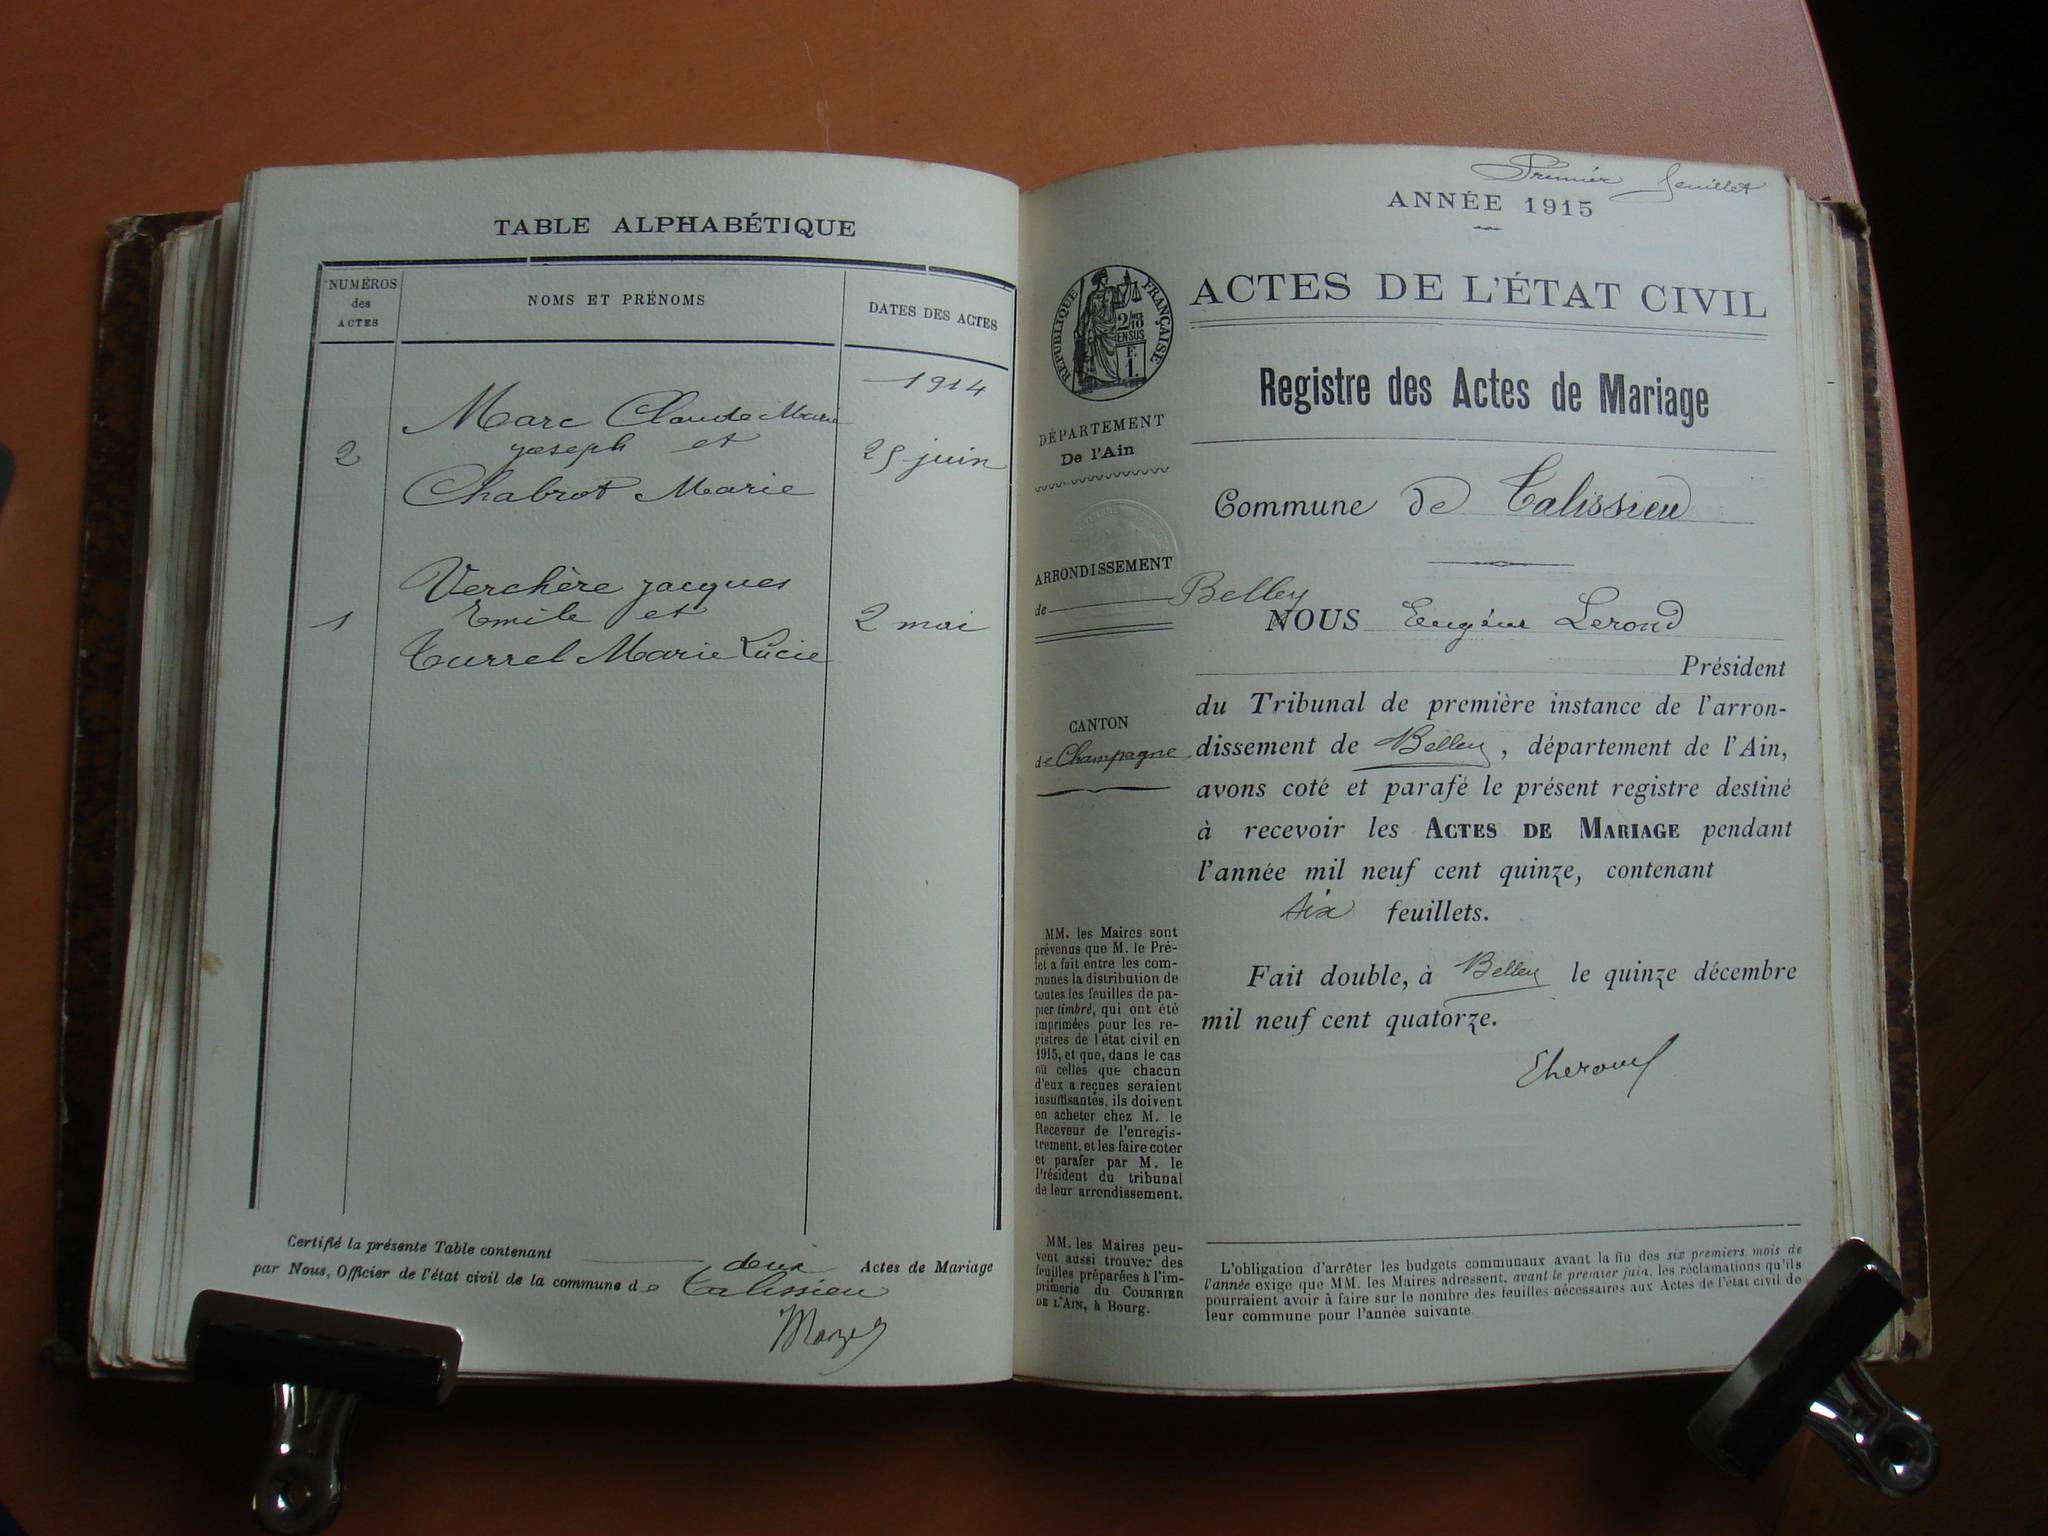 TABLE ALPHABÉTIQUE
NUMÉROS
des
ACTES
NOMS ET PRÉNOMS
DATES DES ACTES
1914
Marc Claude Marie
2 joseph et 25 juin
Chabrot Marie
Verchère jacques
1 Emile et 2 mai
Turrel Marie Lucie
Certifié la présente Table contenant deux Actes de Mariage
par Nous, Officier de l'état civil de la commune de Talissieu
Premier feuillet
ANNÉE 1915
RÉPUBLIQUE FRANÇAISE
2/10
EN SUS
E
1.
ACTES DE L'ÉTAT CIVIL
Registre des Actes de Mariage
DÉPARTEMENT
De l'Ain
Commune de Talissieu
ARRONDISSEMENT
de Belley
CANTON
de Champagne
NOUS Eugène Lerond
Président
du Tribunal de première instance de l'arron-
dissement de Belley, département de l'Ain,
avons coté et parafé le présent registre destiné
à recevoir les ACTES DE MARIAGE pendant
l'année mil neuf cent quinze, contenant
six feuillets.
Fait double, à Belley le quinze décembre
mil neuf cent quatorze.
MM. les Maires sont
prévenus que M. le Pré-
fet a fait entre les com-
munes la distribution de
toutes les feuilles de pa-
pier timbré, qui ont été
imprimées pour les re-
gistres de l'état civil en
1915, et que, dans le cas
où celles que chacun
d'eux a reçues seraient
insuffisantes, ils doivent
en acheter chez M. le
Receveur de l'enregis-
trement, et les faire coter
et parafer par M. le
Président du tribunal
de leur arrondissement.
MM. les Maires peu-
vent aussi trouver des
feuilles préparées à l'im-
primerie du COURRIER
DE L'AIN, à Bourg.
L'obligation d'arrêter les budgets communaux avant la fin des six premiers mois de
l'année exige que MM. les Maires adressent, avant le premier juin, les réclamations qu'ils
pourraient avoir à faire sur le nombre des feuilles nécessaires aux Actes de l'état civil de
leur commune pour l'année suivante.